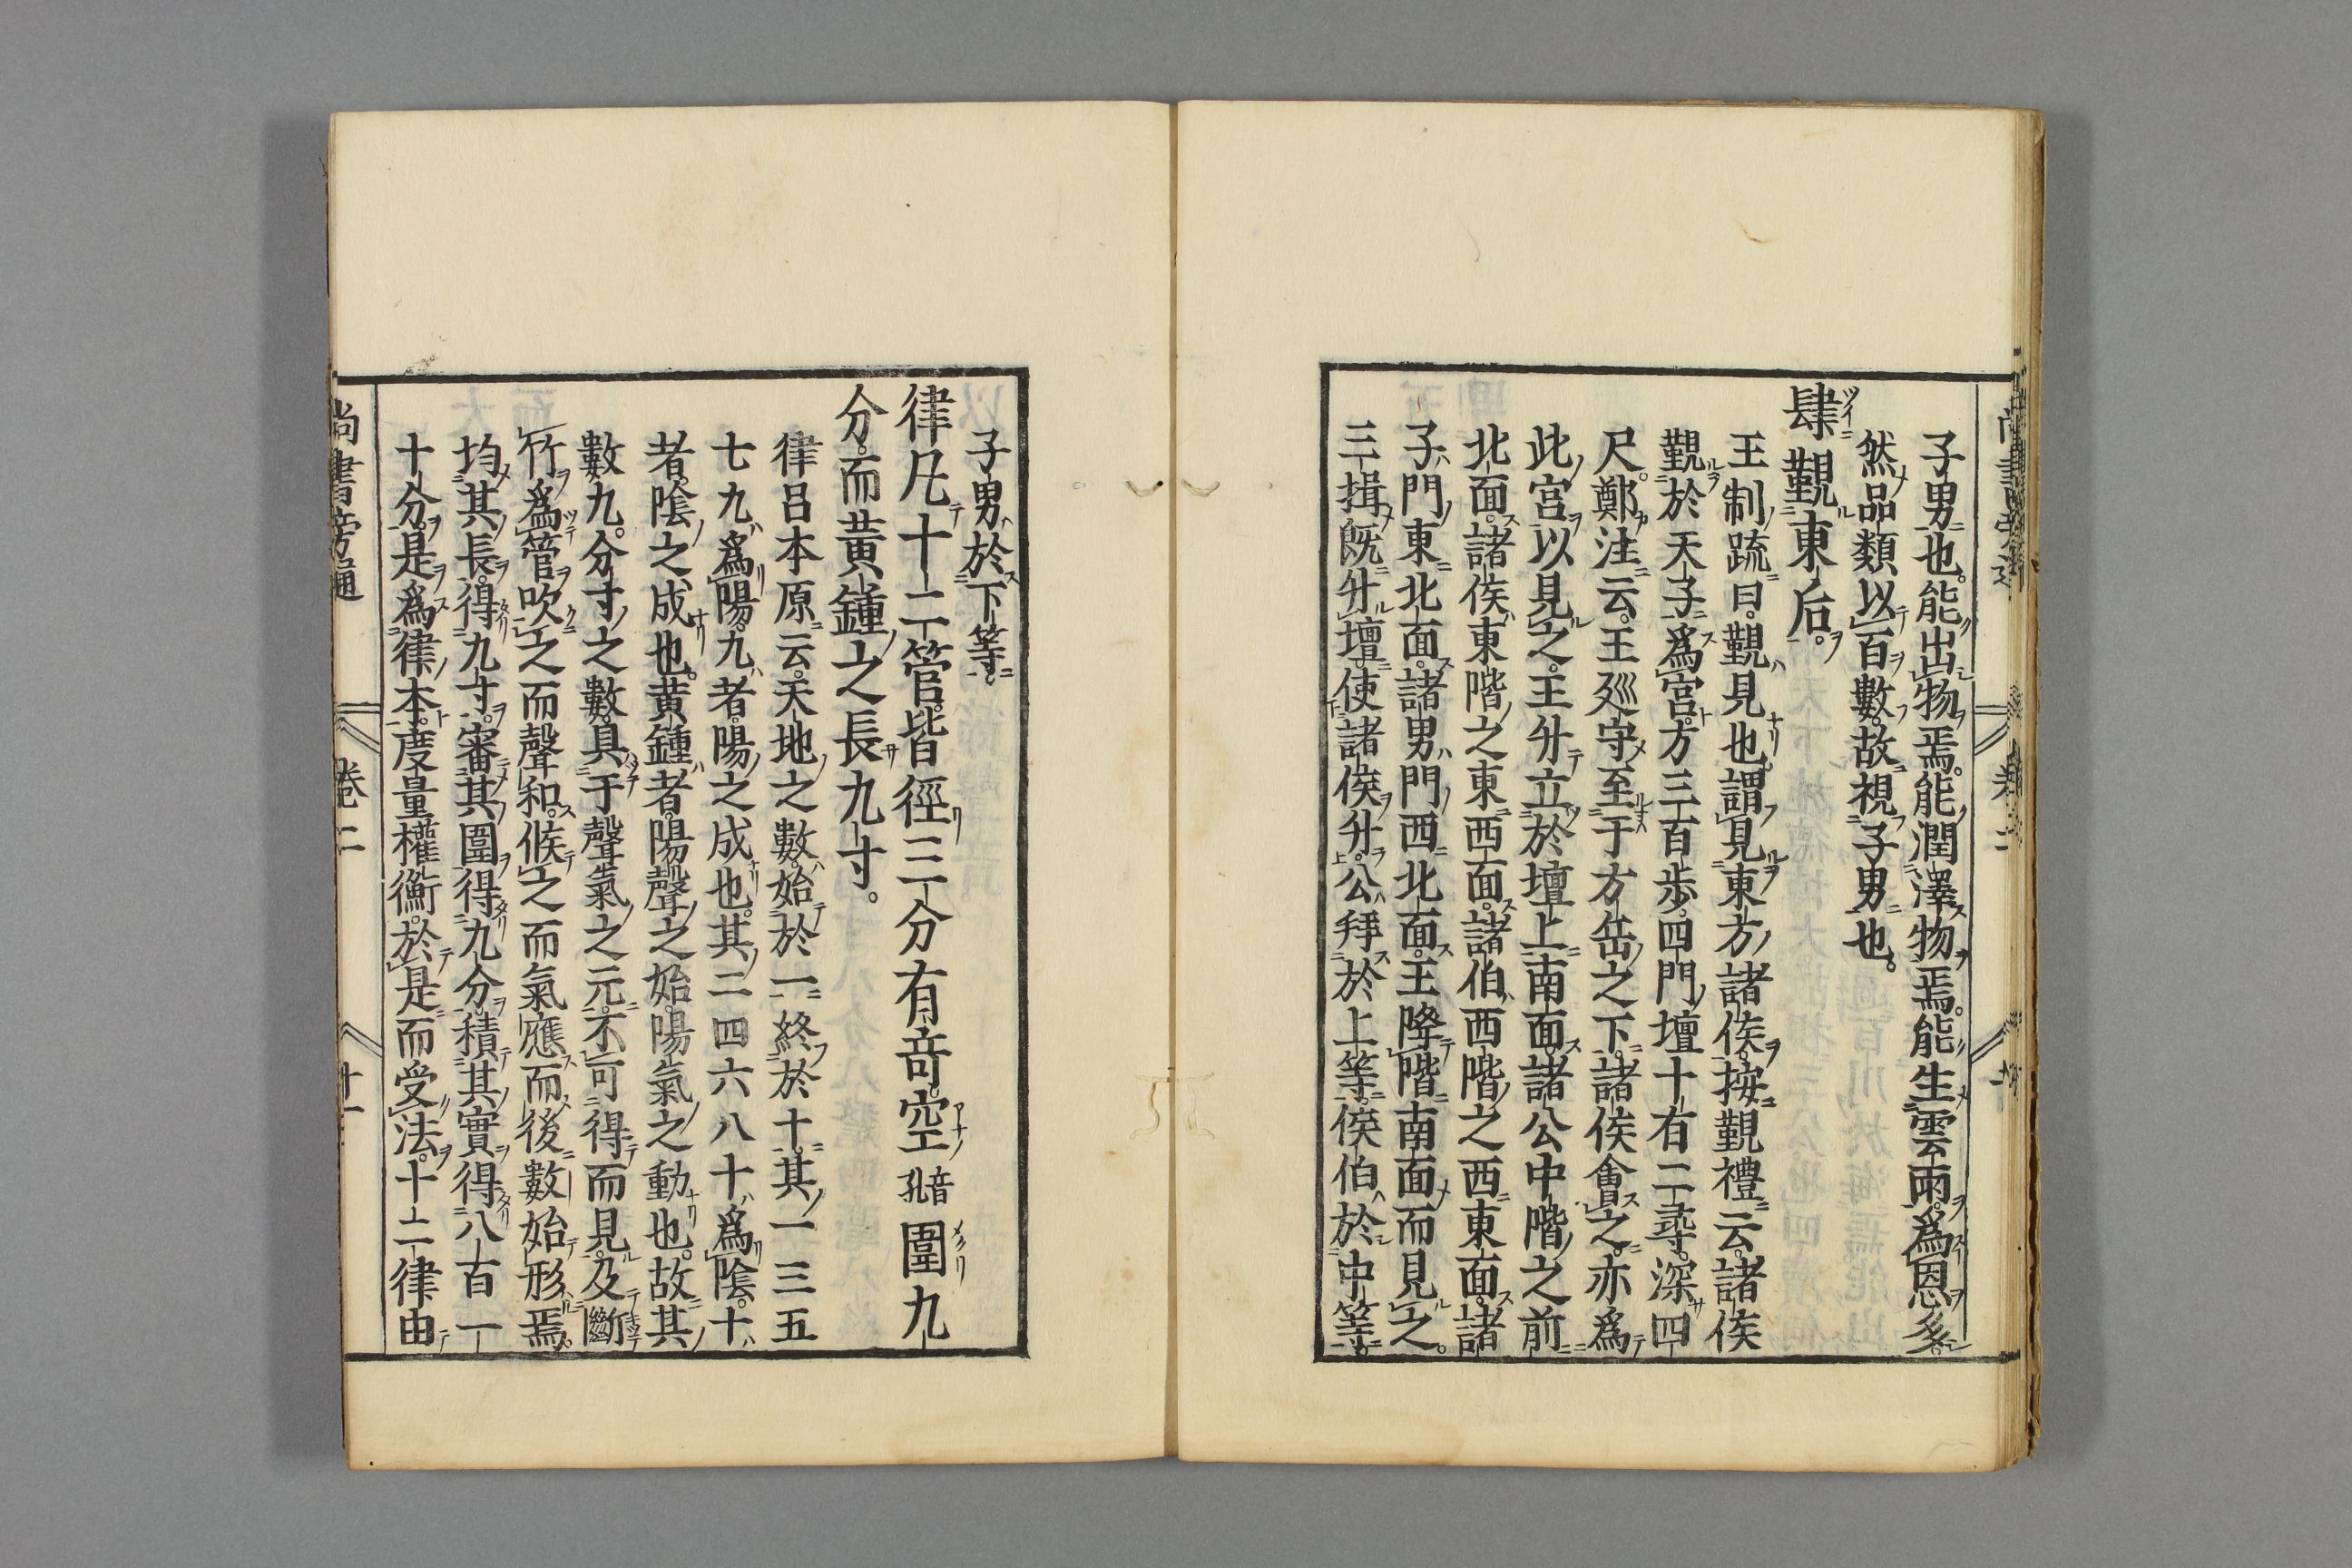 子男也。能出物焉。能潤澤物焉。能生雲雨。爲恩多。
然品類以百數。故視子男也。
肆覲東后。
王制䟽曰。覲見也。謂見東方諸侯。按覲禮云。諸侯
覲於天子。爲宮。方三百步。四門。壇十有二尋。深四
尺。鄭注云。王廵守至于方岳之下。諸侯會之。亦爲
此宮以見之。王升立於壇上。南面。諸公中階之前
北面。諸侯東階之東西面。諸伯西階之西東面。諸
子門東北面。諸男門西北面。王降階南面而見之。
三揖既升壇。使諸侯升。公拜於上等。侯伯於中等。
子男於下等。
律凡十二管。皆徑三分有奇。空音孔圍九
分。而黃鍾之長九寸。
律呂本原云。天地之數。始於一終於十。其一三五
七九爲陽。九者。陽之成也。其二四六八十爲陰。十
者。陰之成也。黃鍾者。陽聲之始。陽氣之動也。故其
數九。分寸之數。具于聲氣之元。不可得而見。及斷
竹爲管。吹之而聲和。候之而氣應。而後數始形焉。
均其長。得九寸。審其圍得九分。積其實得八百一
十分。是爲律本。度量權衡。於是而受法。十二律由
尚書旁通 卷二 十一